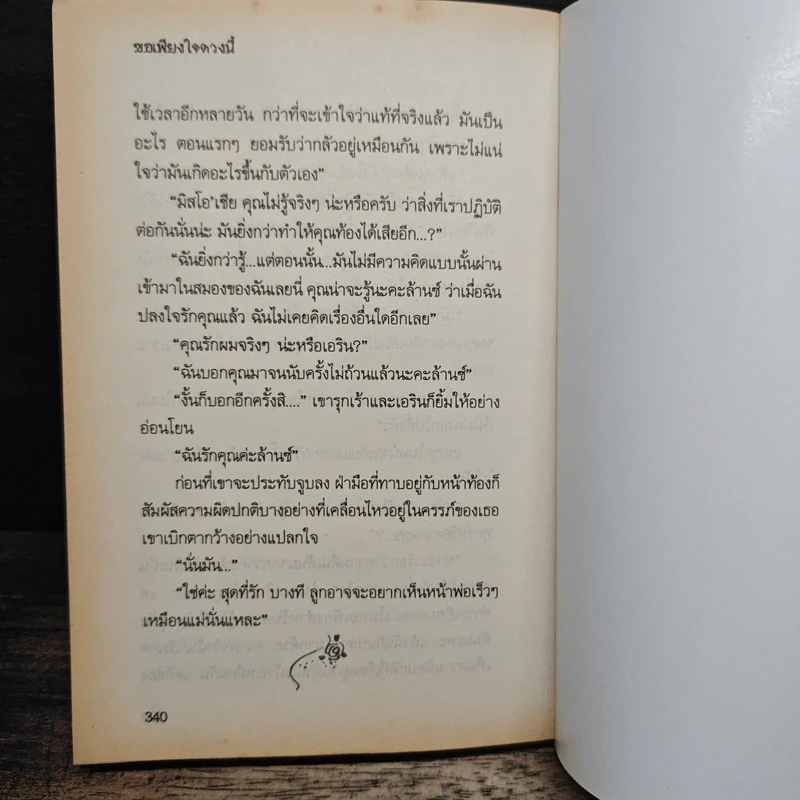 ขอเพียงใจดวงนี้
ใช้เวลาอีกหลายวัน กว่าที่จะเข้าใจว่าแท้ที่จริงแล้ว มันเป็น
อะไร ตอนแรกๆ ยอมรับว่ากลัวอยู่เหมือนกัน เพราะไม่แน่
ใจว่ามันเกิดอะไรขึ้นกับตัวเอง”
“มิสโอ'เชีย คุณไม่รู้จริงๆ น่ะหรือครับ ว่าสิ่งที่เราปฏิบัติ
ต่อกันนั่นน่ะ มันยิ่งกว่าทำให้คุณท้องได้เสียอีก...?”
“ฉันยิ่งกว่ารู้...แต่ตอนนั้น...มันไม่มีความคิดแบบนั้นผ่าน
เข้ามาในสมองของฉันเลยนี่ คุณน่าจะรู้นะคะล้านซ์ ว่าเมื่อฉัน
ปลงใจรักคุณแล้ว ฉันไม่เคยคิดเรื่องอื่นใดอีกเลย”
“คุณรักผมจริงๆ น่ะหรือเอริน?”
“ฉันบอกคุณมาจนนับครั้งไม่ถ้วนแล้วนะคะล้านซ์”
“งั้นก็บอกอีกครั้งสิ....” เขารุกเร้าและเอรินก็ยิ้มให้อย่าง
อ่อนโยน
“ฉันรักคุณค่ะล้านซ์”
ก่อนที่เขาจะประทับจูบลง ฝ่ามือที่ทาบอยู่กับหน้าท้องก็
สัมผัสความผิดปกติบางอย่างที่เคลื่อนไหวอยู่ในครรภ์ของเธอ
เขาเบิกตากว้างอย่างแปลกใจ
“นั่นมัน...”
“ใช่ค่ะ สุดที่รัก บางที ลูกอาจจะอยากเห็นหน้าพ่อเร็วๆ
เหมือนแม่นั่นแหละ”
340